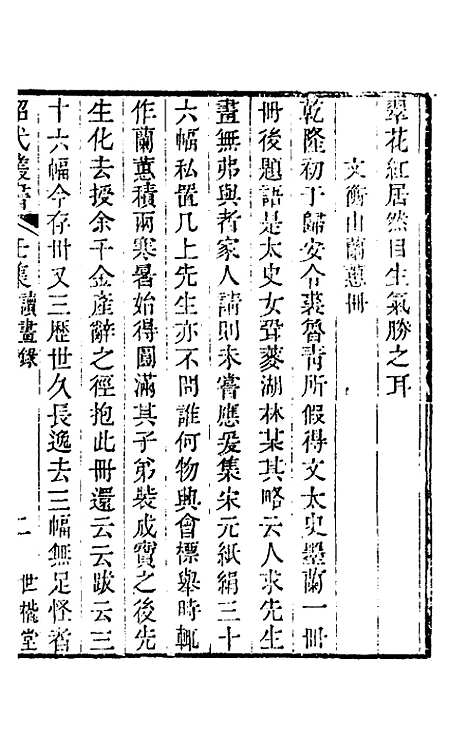 翠花紅居然目生氣勝之耳
文衡山蘭蕙冊
乾隆初于歸安令裘魯青所假得文太史墨蘭一冊
冊後題語是太史女聟菱湖林某其略云人求先生
畫無弗與者家人請則未嘗應爰集宋元紙絹三十
六幅私置几上先生亦不問誰何物興會標舉時輒
作蘭蕙積兩寒暑始得圓滿其子弟裝成寶之後先
生化去授余千金產辭之徑抱此冊還云云跋云三
十六幅今存卅又三歷世久長逸去三幅無足怪者
昭代叢書 壬集讀畫錄 二 世楷堂